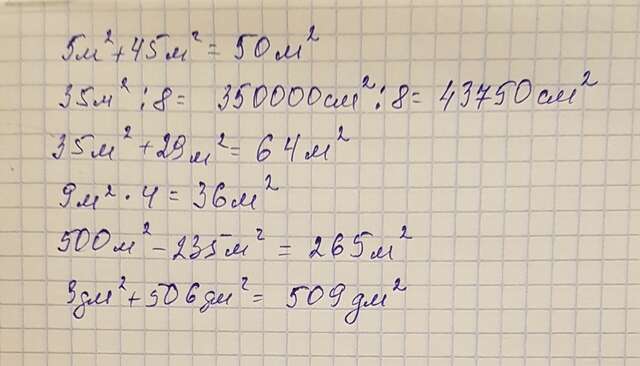 5м² + 45м² = 50м²
35м² : 8 = 350000см² : 8 = 43750см²
35м² + 29м² = 64м²
9м² · 4 = 36м²
500м² - 235м² = 265м²
3дм² + 506дм² = 509дм²